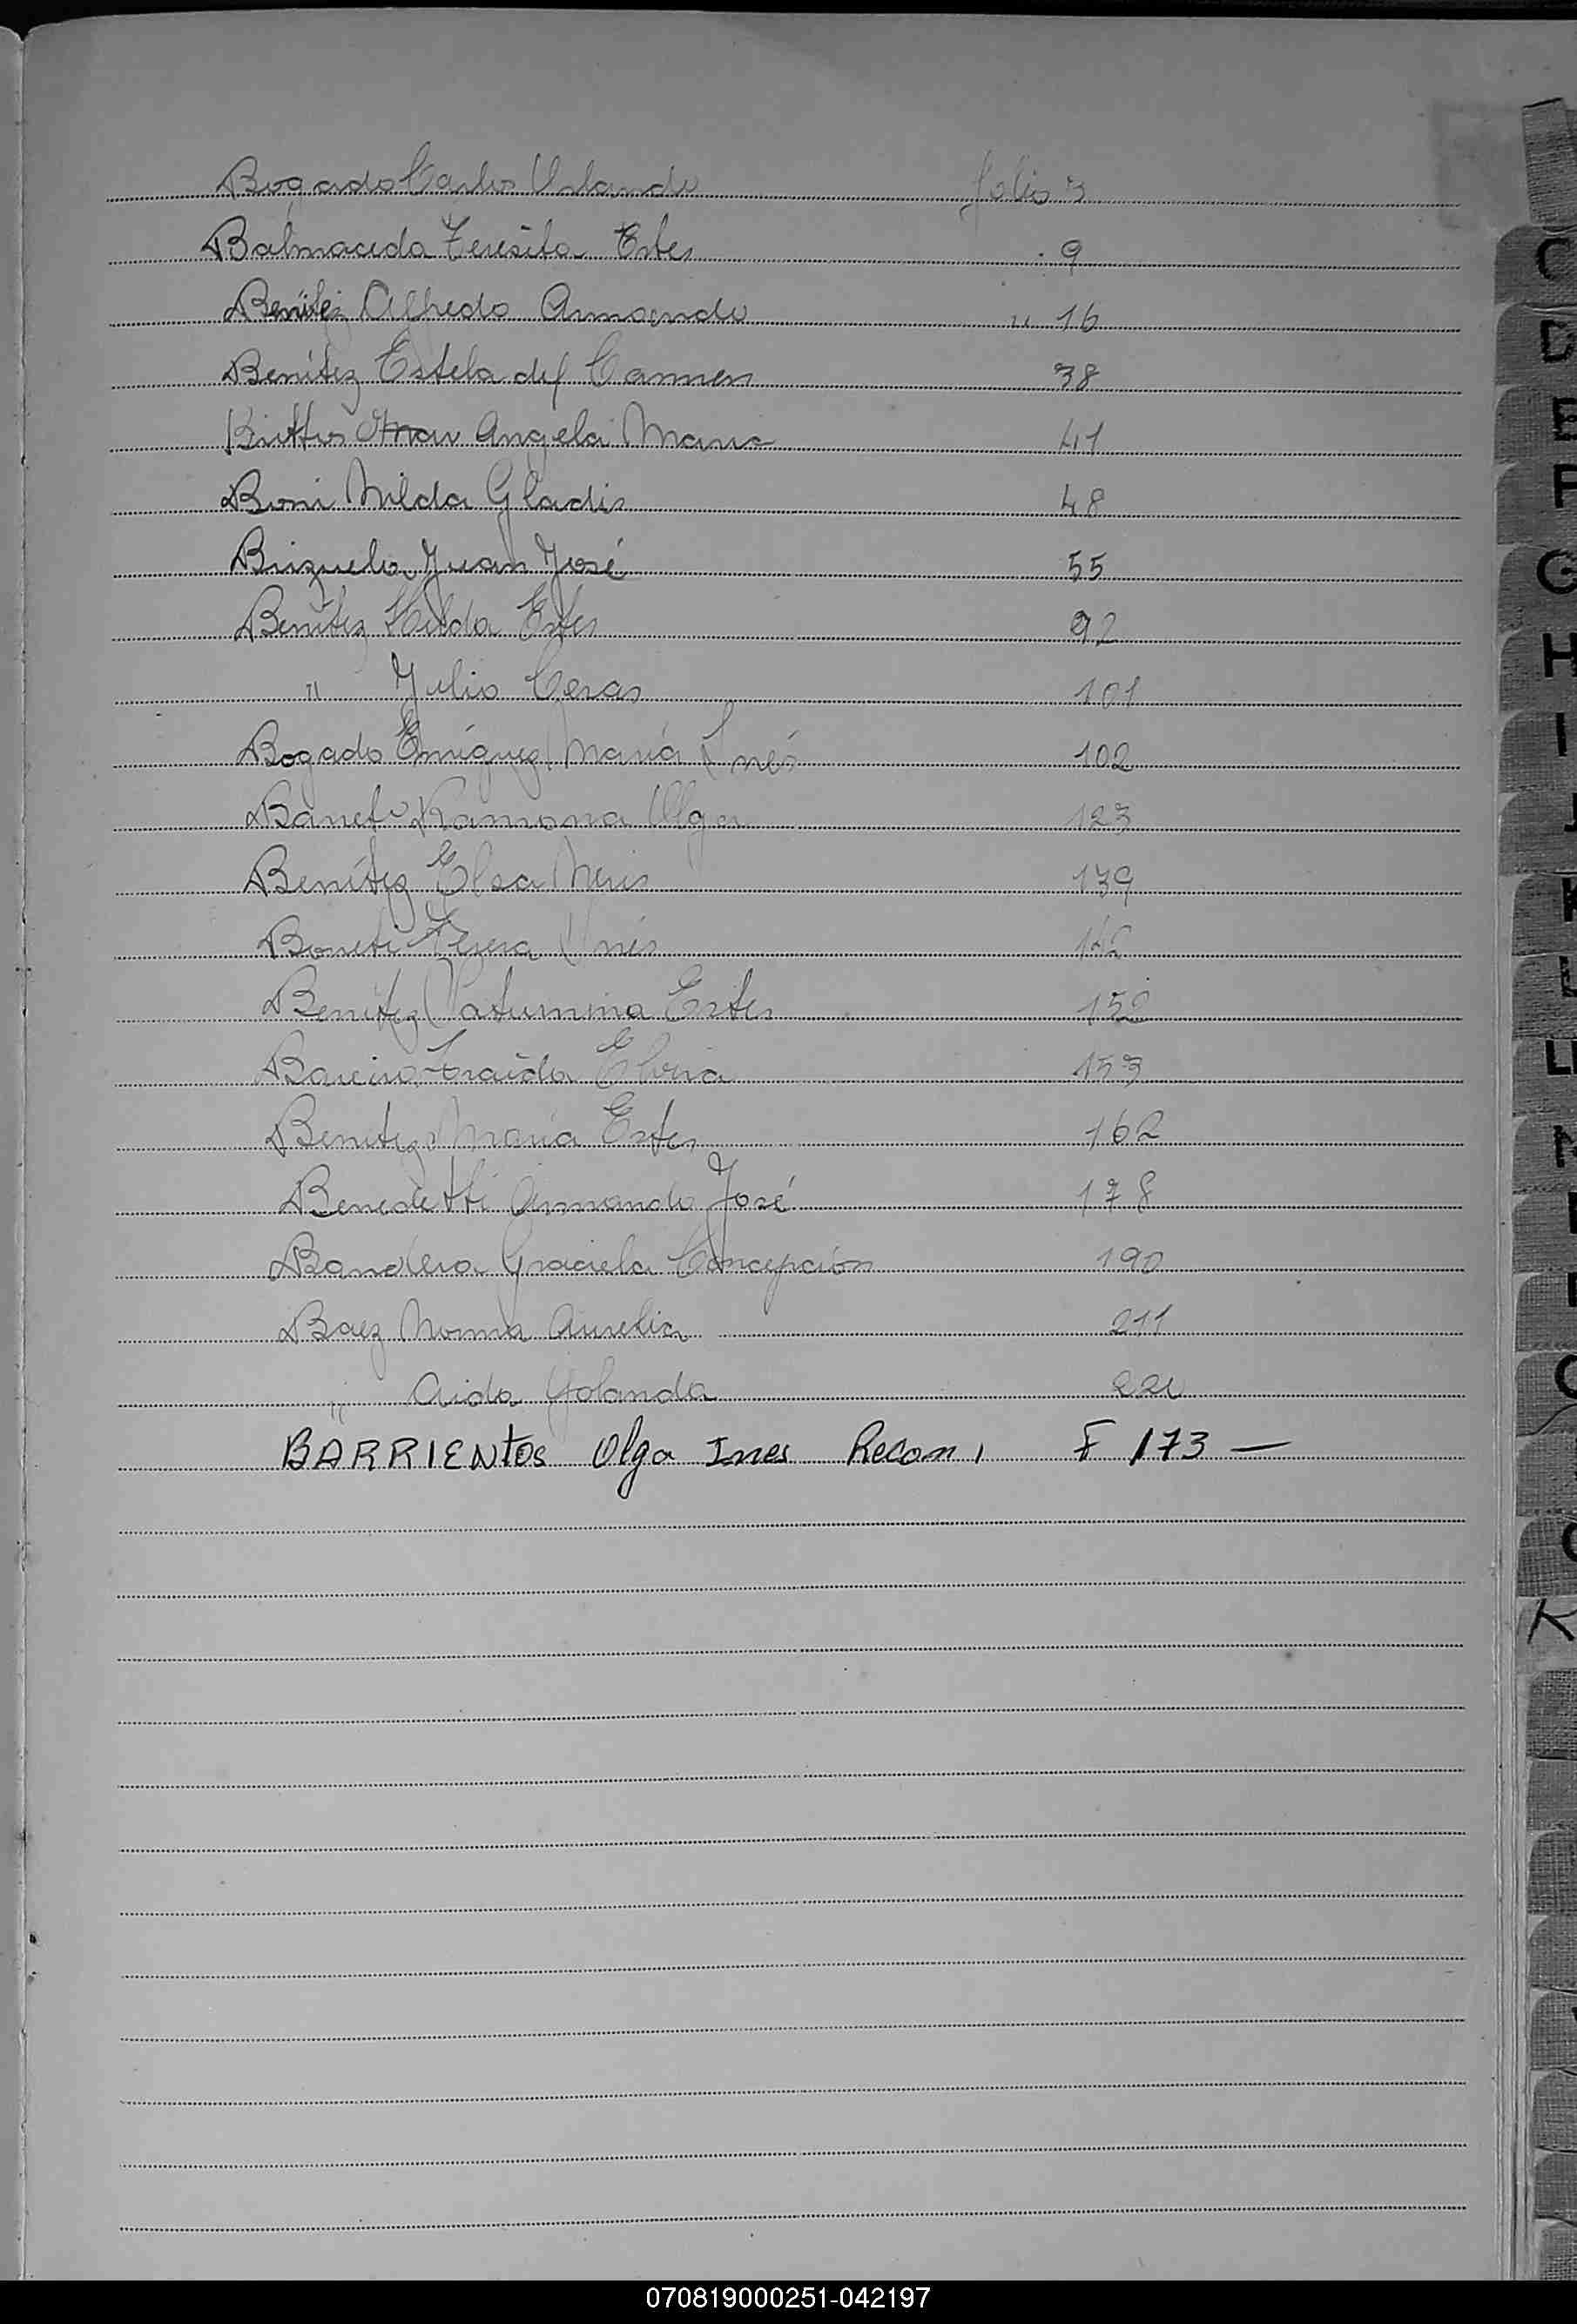 Bogado Carlos Orlando folio 3
Balmaceda Teresita Ester . 9
Benitez Alfredo Armando " 16
Benítez Estela del Carmen 38
Angela Maria 41
Boni Nilda Gladis 48
Brizuela Juan José 55
Benítez Hilda Ester 92
" Julio Cesar 101
Bogado Enriquez María Inés 102
Ramona Olga 123
Benítez Elsa Neris 139
Teresa Inés 142
Benitez Saturnina Ester 152
Bareiro Zraida Elvira 153
Benitez Maria Ester 162
Benedetti Armando José 178
Bandera Graciela Concepción 190
Baez Norma Aurelia 211
" Aida Yolanda 220
BARRIENtos Olga Ines Recon, F 173 —
C
D
E
F
G
H
I
J
K
L
LL
M
K
070819000251-042197